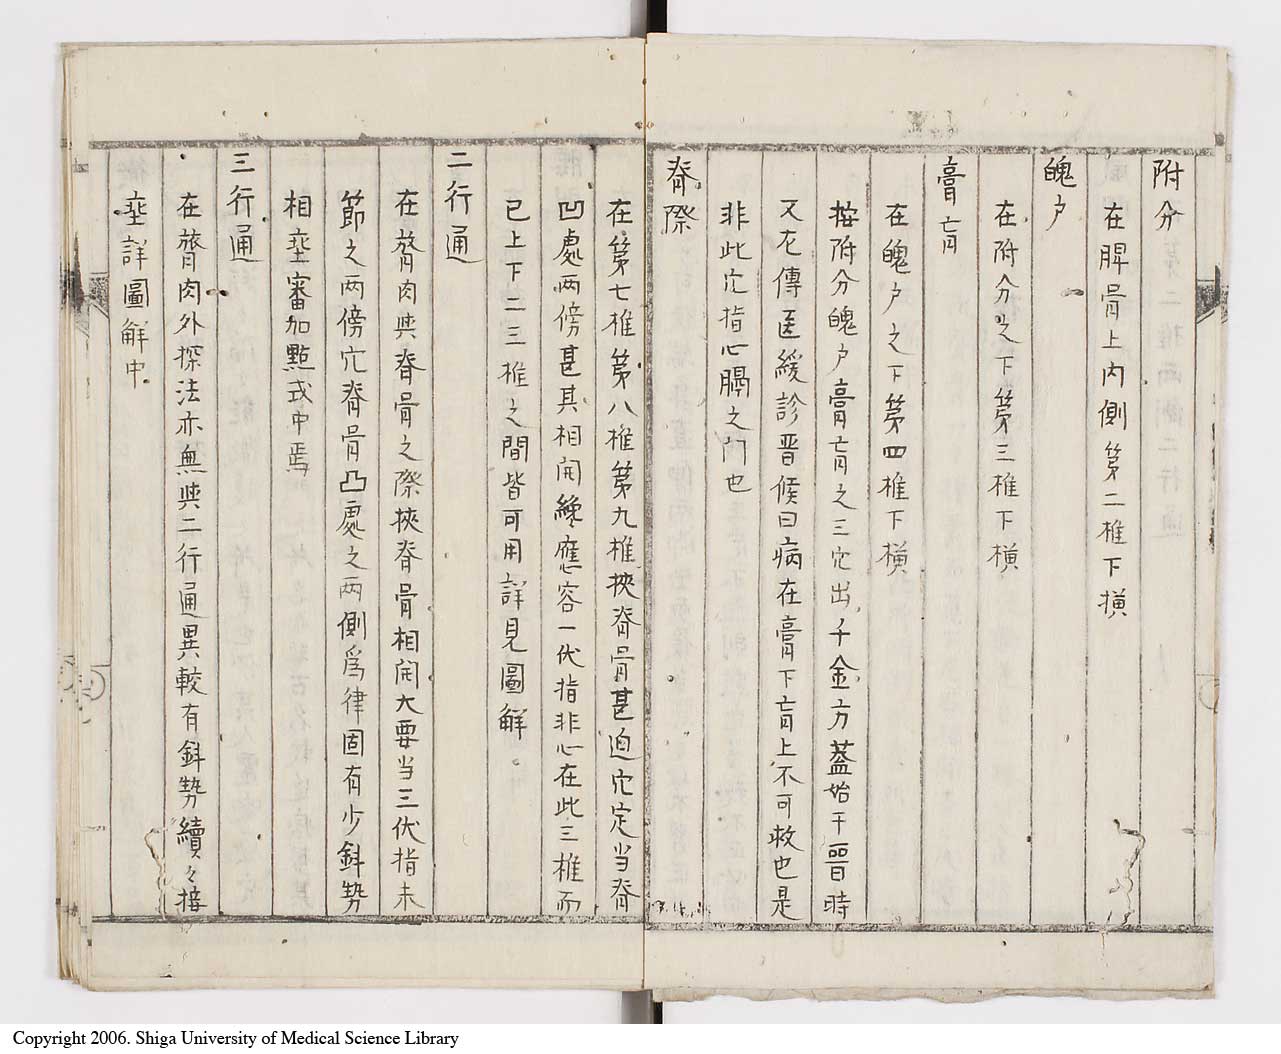 附分
在脾骨上内側第二椎下横
魄户
在附分之下第三椎下横
膏肓
在魄户之下第四椎下横
按附分魄户膏肓之三穴出千金方蓋始于晋時
又左傳医緩診晋侯曰病在膏下肓上不可救也是
非此穴指心膈之間也
脊際
在第七椎第八椎第九椎挾脊骨甚迫穴定当脊
凹處两傍甚其相開纔應容一伏指非必在此三椎而
已上下二三椎之間皆可用詳見圖解。
二行通
在膂肉與脊骨之際挾脊骨相開大要当三伏指未
節之两傍穴脊骨凸處之两側爲律固有少斜勢
相㘴審加點或中焉
三行通
在膂肉外探法亦無與二行通異較有斜勢續々接
㘴詳圖解中
Copyright 2006. Shiga University of Medical Science Library